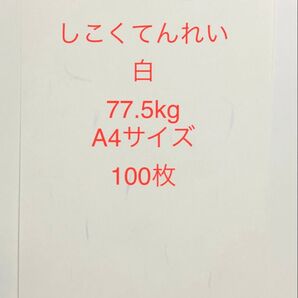 しこくてんれい
白
77.5kg
A4サイズ
100枚